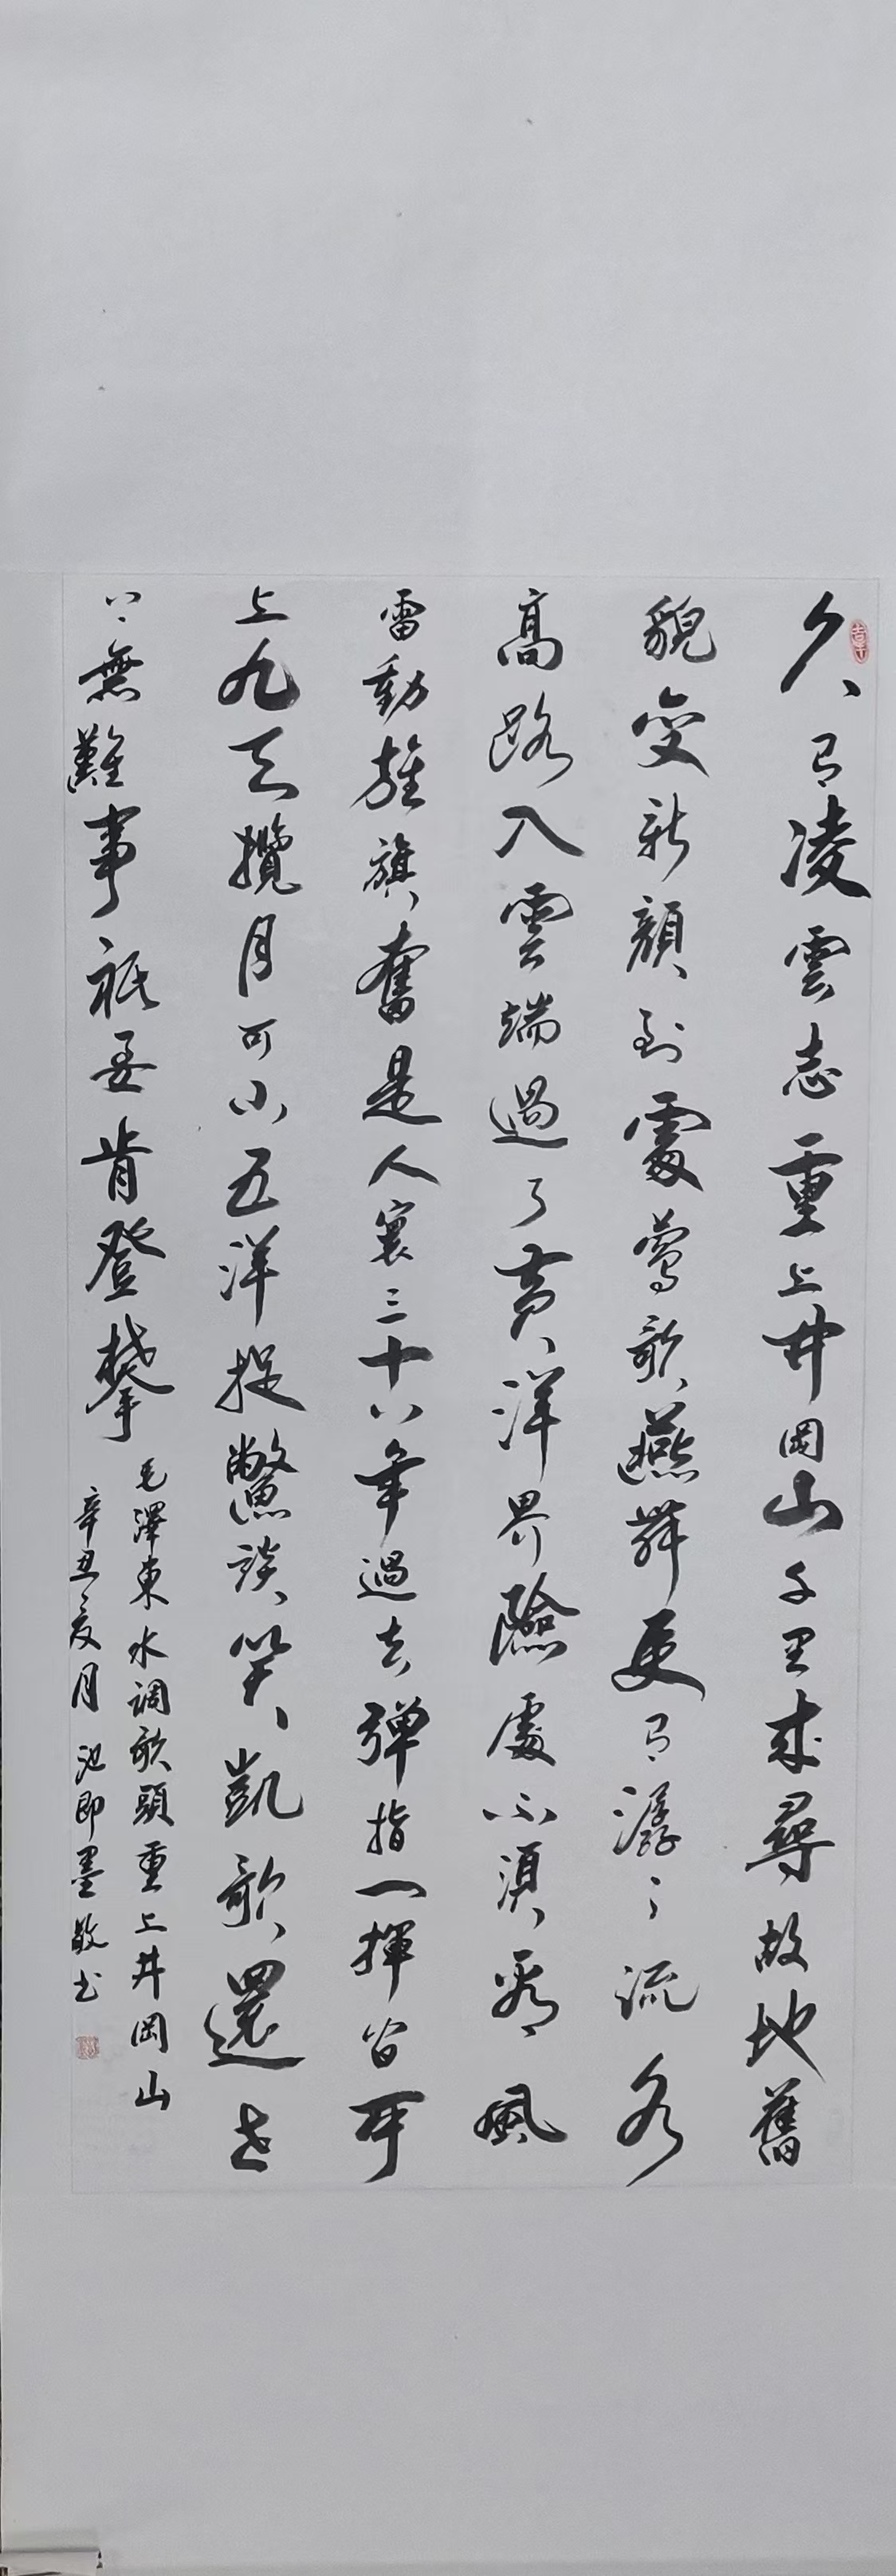 久有凌雲志重上井岡山千里來尋故地舊
貌變新顏到處鶯歌燕舞更有潺々流水
高路入雲端過了黃洋界險處不須看風
雷動旌旗奮是人寰三十八年過去彈指一揮間可
上九天攬月可下五洋捉鱉談笑凱歌還世
上無難事祇要肯登攀
毛澤東水調歌頭重上井岡山
辛丑夏月池即墨敬书